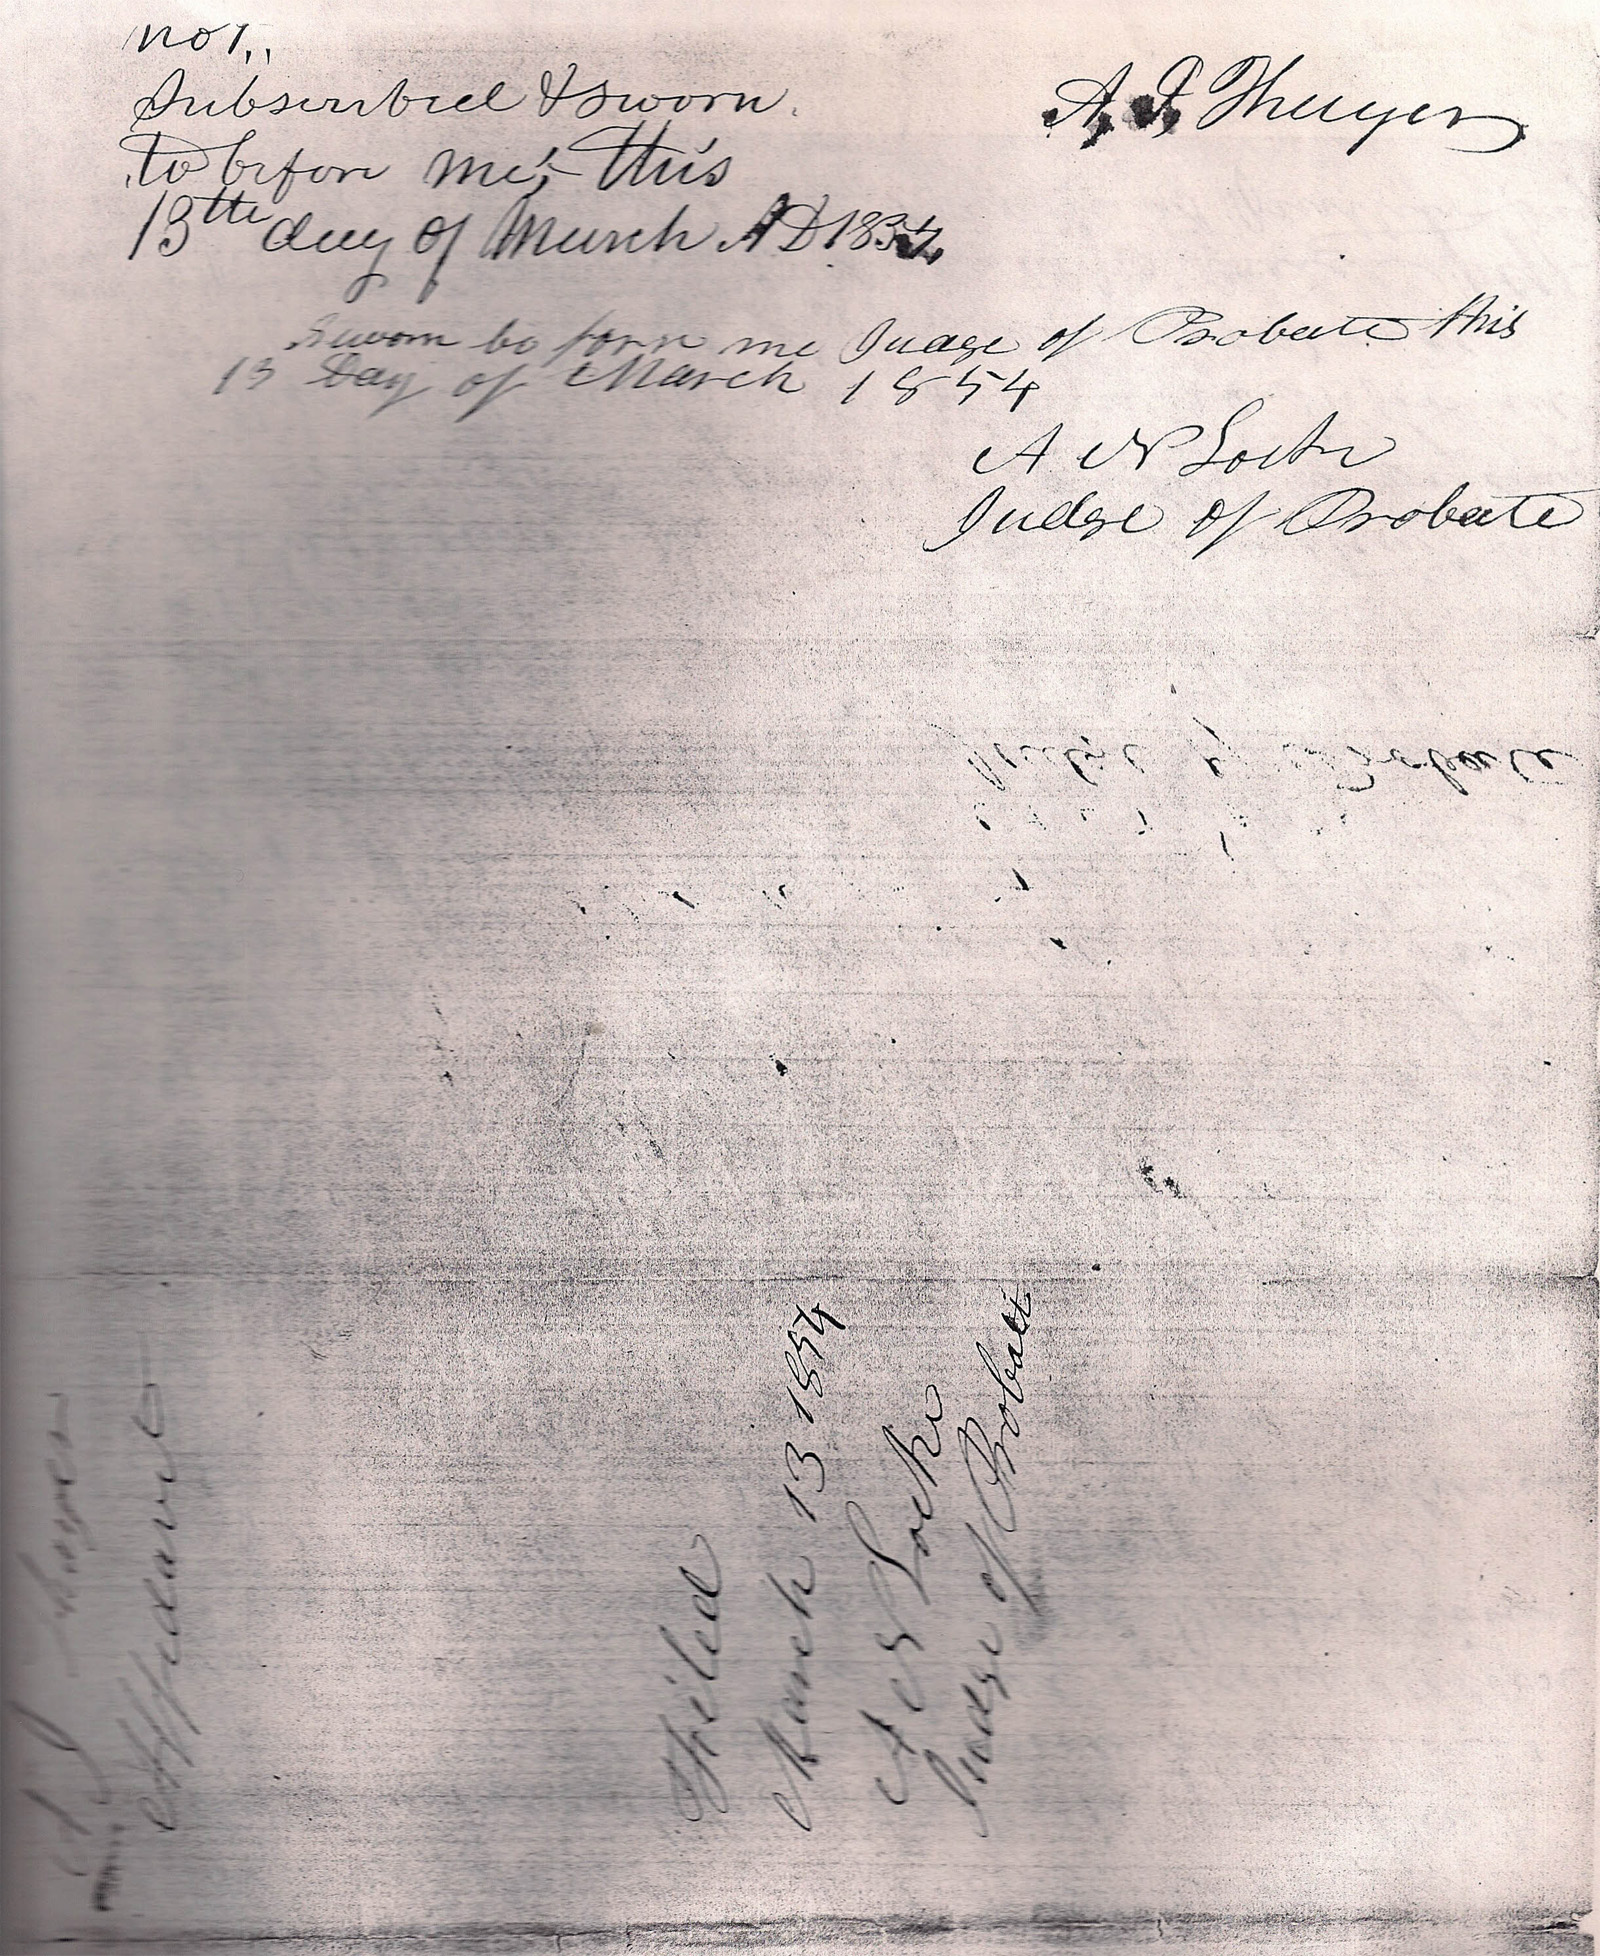 not.,
Subscribed & sworn
A. J. Thayer
to before me, this
13th day of March AD 1854
Sworn be forr me Judge of Probate this
13 Day of March 1854
A N Locke
Judge of Probate
Judge of Probate
Thayer
Affidavit
Filed
March 13 1854
A N Locke
Judge of Probate